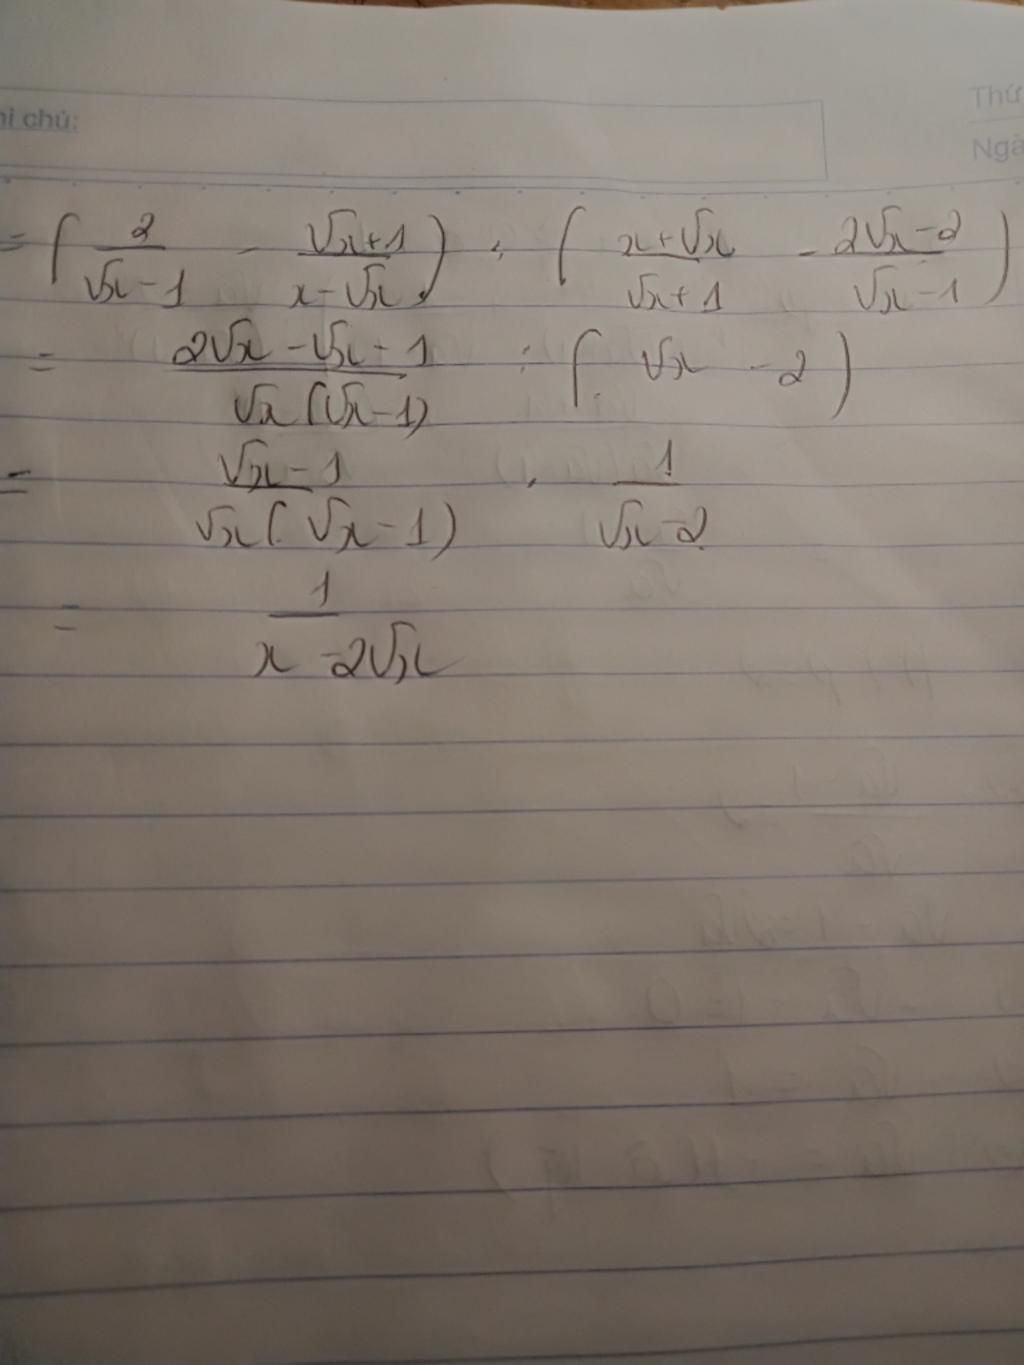 ni chú:
Thứ
Ngà
= ( 2/(√x - 1) - (√x + 1)/(x - √x) ) : ( (x + √x)/(√x + 1) - (2√x - 2)/(√x - 1) )
= (2√x - √x - 1)/(√x(√x - 1)) : ( √x - 2 )
= (√x - 1)/(√x(√x - 1)) . 1/(√x - 2)
= 1/(x - 2√x)